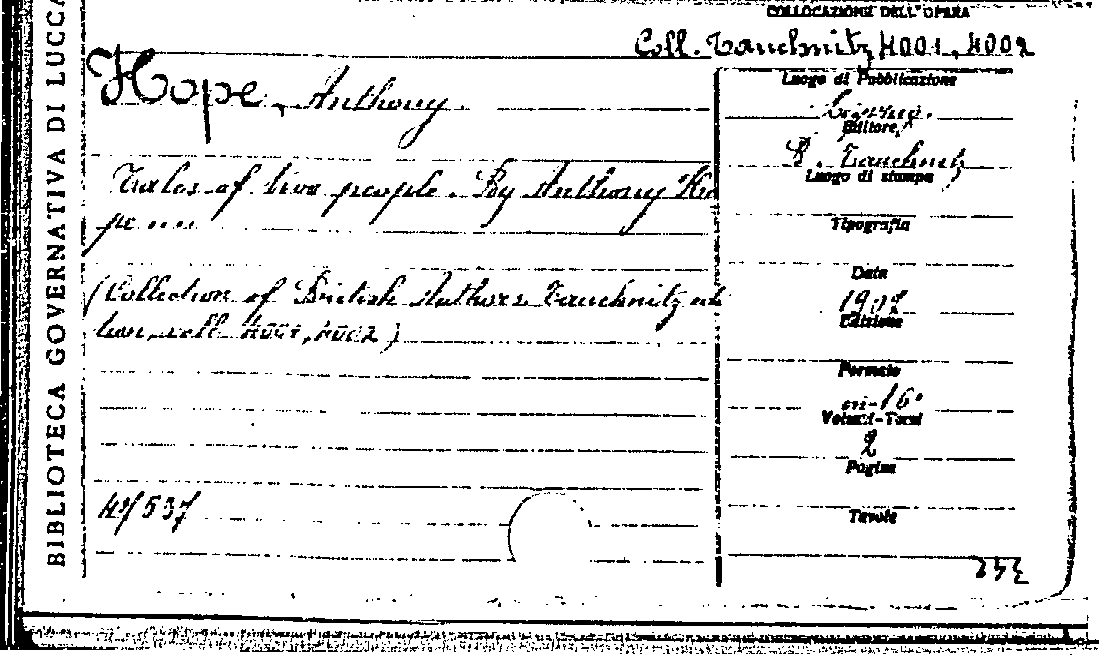 BIBLIOTECA GOVERNATIVA DI LUCCA
COLLOCAZIONE DELL'OPERA
Coll. Tauchnitz 4001, 4002
Hope, Anthony.
Tales of two people. By Anthony Ho
pe
(Collection of British Authors Tauchnitz edi
tion, voll. 4001, 4002)
Luogo di Pubblicazione
Editore
B. Tauchnitz
Luogo di stampa
Tipografia
Data
Edizione
Formato
in-16°
Volumi-Tomi
2
Pagine
Tavole